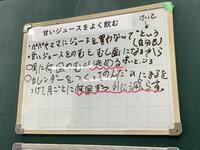 けいと
甘いジュースをよく飲む
・パパやママにジュースを買わないでという
(自分)
・甘いジュースをのむとむし歯になるから
○1月に何回のむか決める
○カレンダーをつくってのんだ日にまるを
つけて月ごとに何回